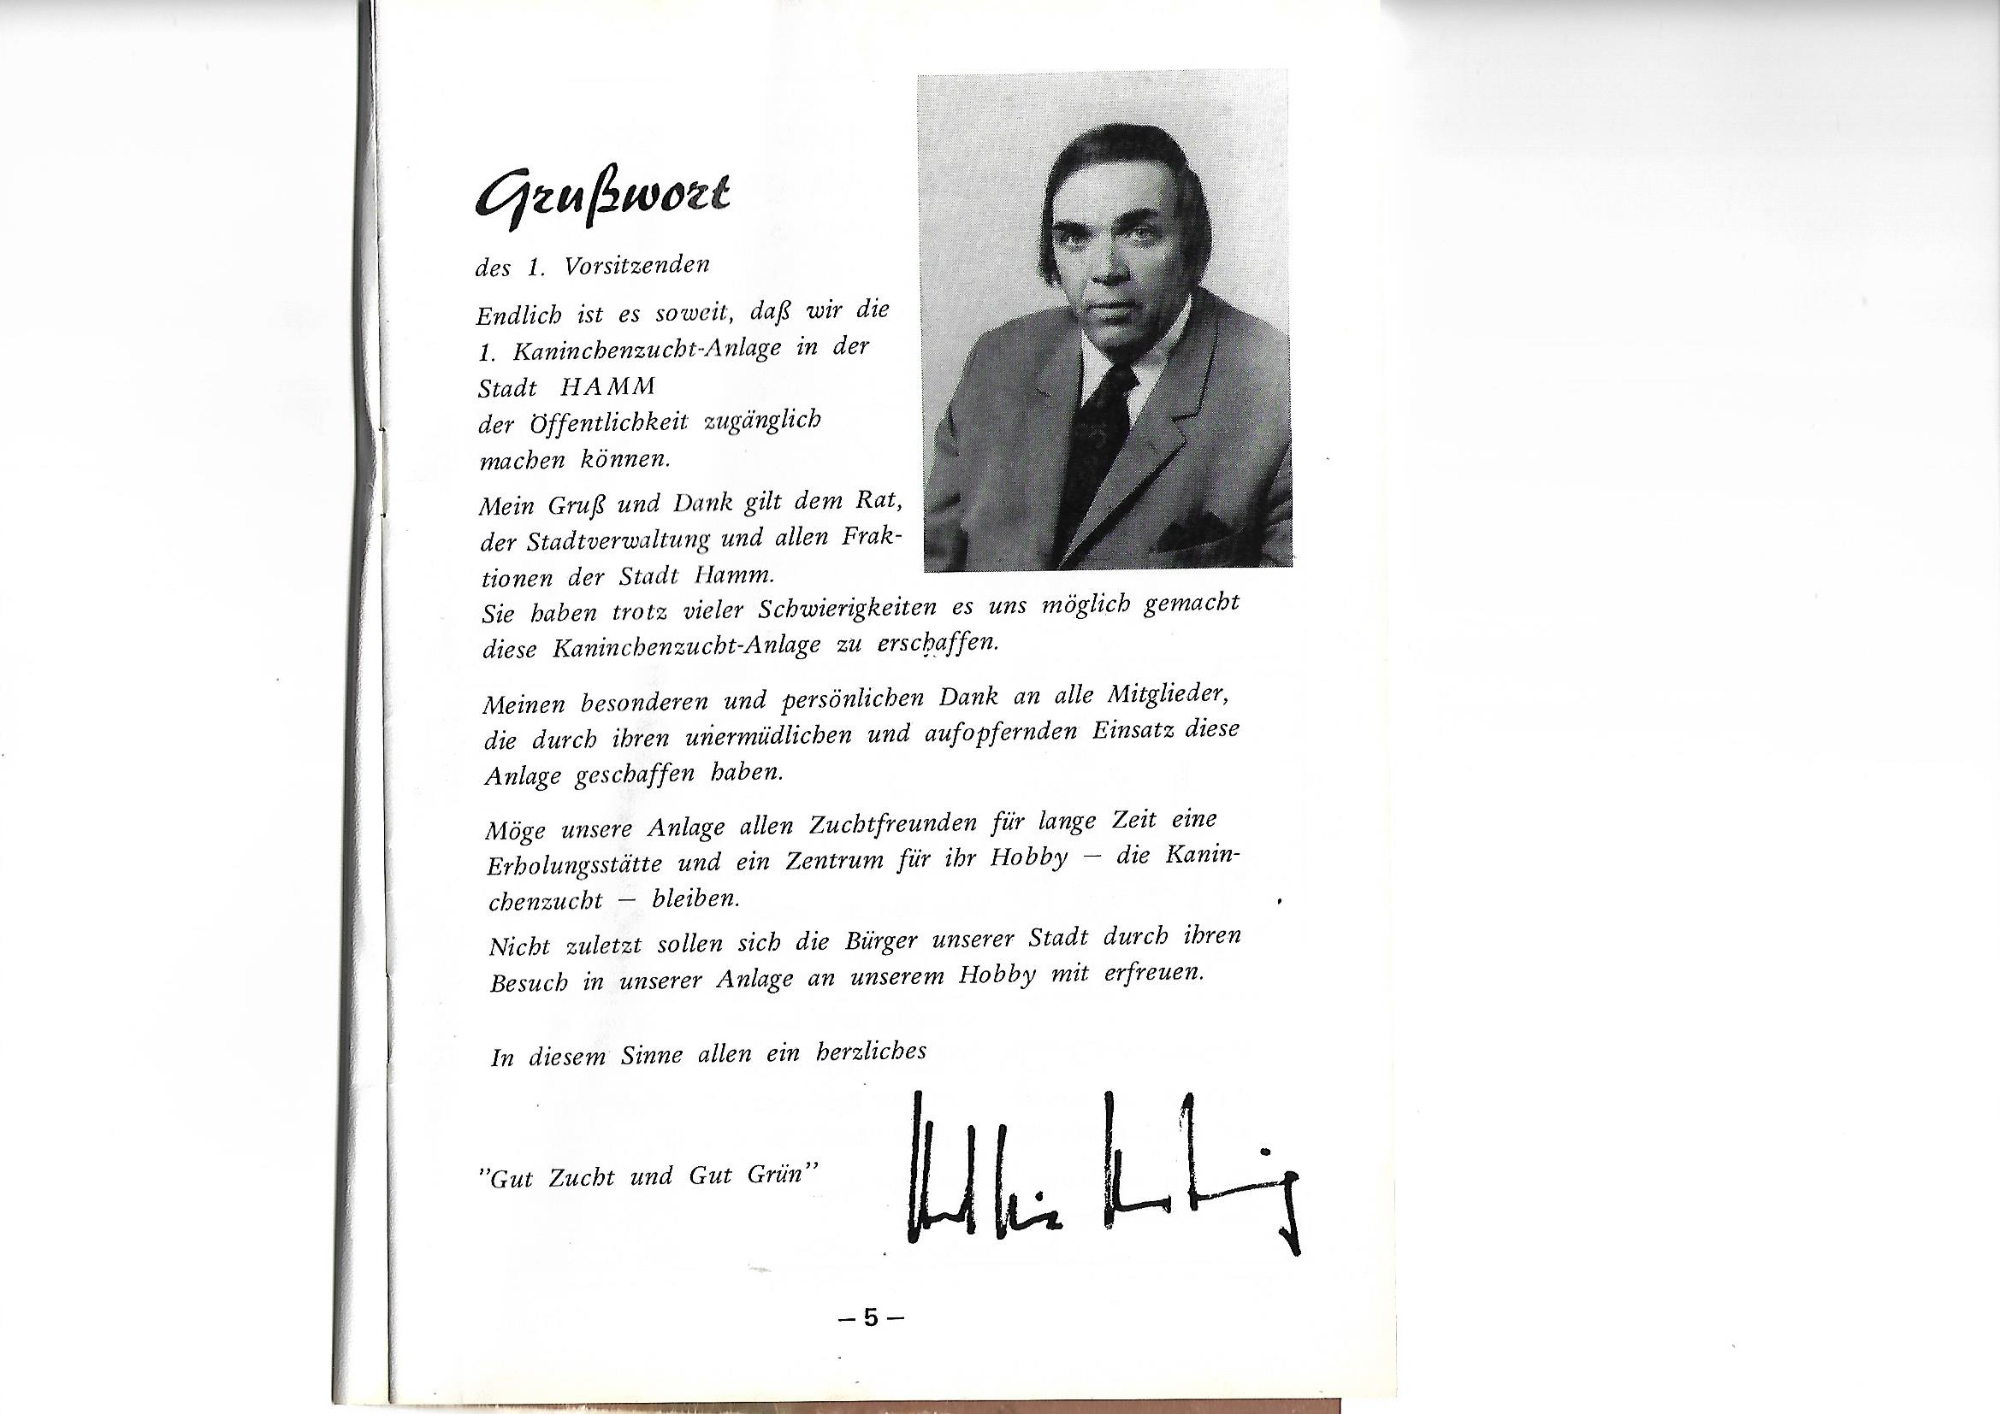 Grußwort
des 1. Vorsitzenden
Endlich ist es soweit, daß wir die
1. Kaninchenzucht-Anlage in der
Stadt HAMM
der Öffentlichkeit zugänglich
machen können.
Mein Gruß und Dank gilt dem Rat,
der Stadtverwaltung und allen Frak-
tionen der Stadt Hamm.
Sie haben trotz vieler Schwierigkeiten es uns möglich gemacht
diese Kaninchenzucht-Anlage zu erschaffen.
Meinen besonderen und persönlichen Dank an alle Mitglieder,
die durch ihren unermüdlichen und aufopfernden Einsatz diese
Anlage geschaffen haben.
Möge unsere Anlage allen Zuchtfreunden für lange Zeit eine
Erholungsstätte und ein Zentrum für ihr Hobby — die Kanin-
chenzucht — bleiben.
Nicht zuletzt sollen sich die Bürger unserer Stadt durch ihren
Besuch in unserer Anlage an unserem Hobby mit erfreuen.
In diesem Sinne allen ein herzliches
"Gut Zucht und Gut Grün"
— 5 —